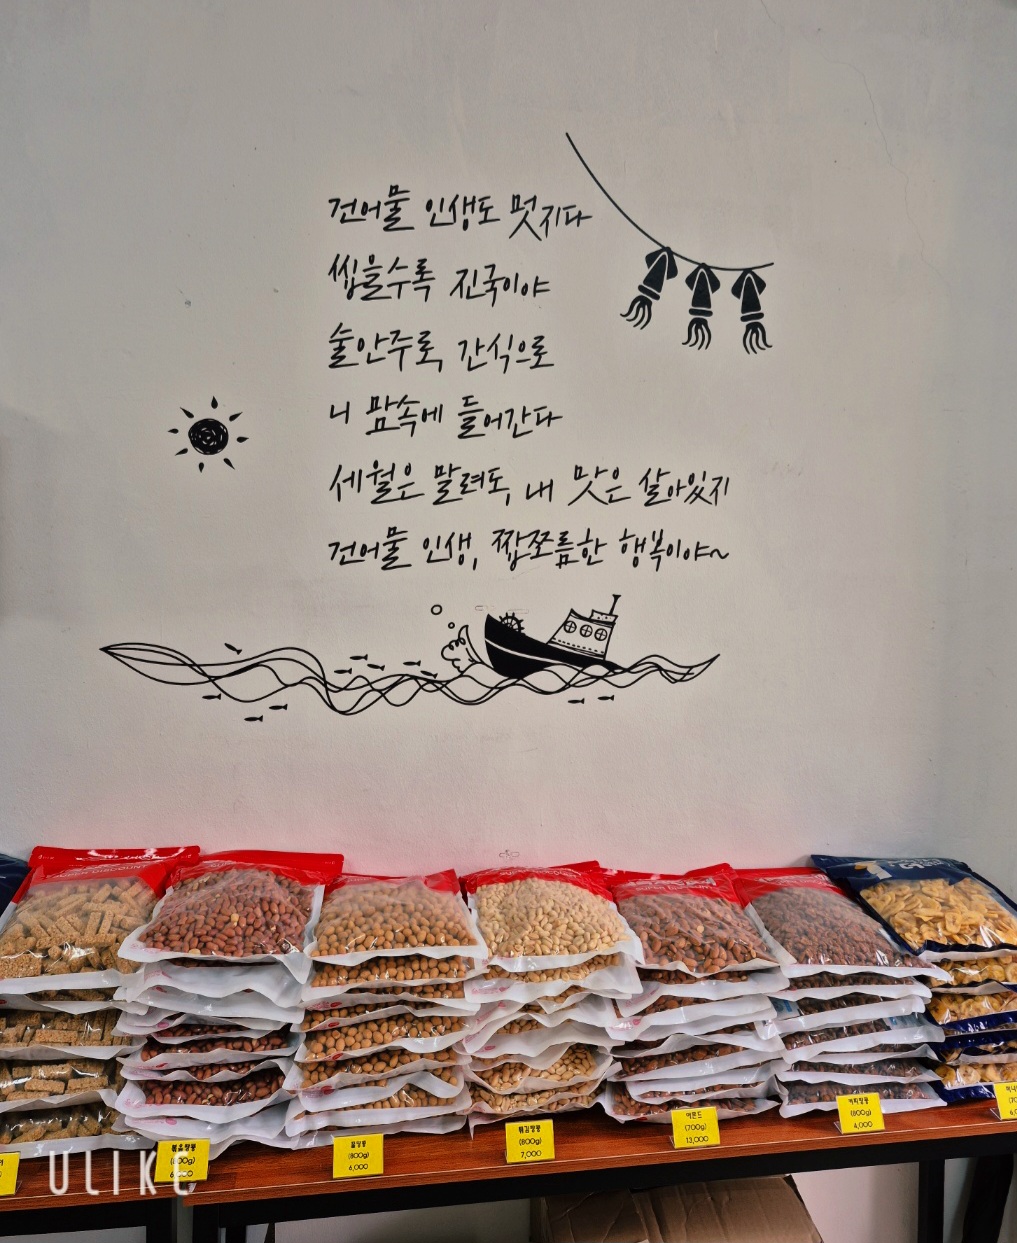 건어물 인생도 멋지다
씹을수록 진국이야
술안주로, 간식으로
니 맘속에 들어간다
세월은 말려도, 내 맛은 살아있지
건어물 인생, 짭쪼름한 행복이야~
볶음땅콩
(800g)
꿀땅콩
(800g)
6,000
튀김땅콩
(800g)
7,000
아몬드
(700g)
13,000
커피땅콩
(800g)
4,000
ULIKE